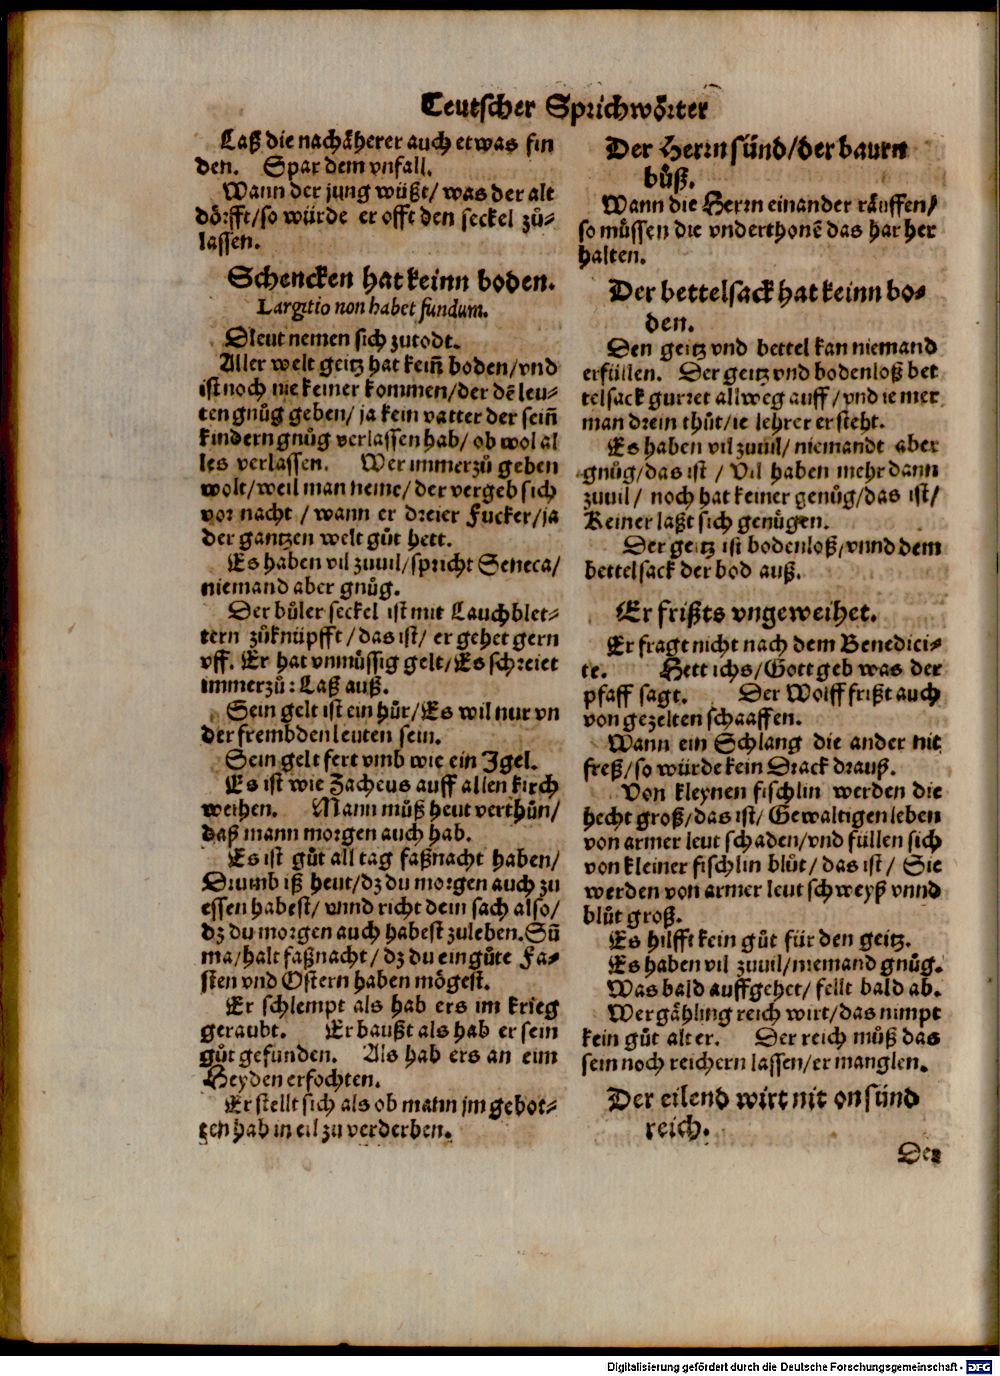 Teutscher Sprichwoͤrter
Laß die nachaͤherer auch etwas fin
den. Spar dem vnfall.
Wann der jung wuͤßt/ was der alt
doͤrfft/so wuͤrde er offt den seckel zuͦ⸗
lassen.
Schencken hat keinn boden.
Largitio non habet fundum.
Dleut nemen sich zutodt.
Aller welt geitz hat kein̄ boden/vnd
ist noch nie keiner kommen/der dē leu⸗
ten gnuͦg geben/ ja kein vatter der sein̄
kindern gnuͦg verlassen hab/ ob wol al
les verlassen. Wer immerzuͦ geben
wolt/weil man neme/der vergeb sich
vor nacht / wann er dreier Fucker/ja
der gantzen welt guͦt hett.
Es haben vil zuuil/spricht Seneca/
niemand aber gnuͦg.
Der buͦler seckel ist mit Lauchblet⸗
tern zuͦknüpfft/das ist/ er gehet gern
vff. Er hat vnmuͤssig gelt/Es schreiet
immerzuͦ: Laß auß.
Sein gelt ist ein huͦr/Es wil nur vn
der frembden leuten sein.
Sein gelt fert vmb wie ein Igel.
Es ist wie Zacheus auff allen kirch
weihen. Mann muͦß heut verthuͦn/
daß mann morgen auch hab.
Es ist guͦt all tag faßnacht haben/
Drumb iß heut/dz du morgen auch zu
essen habest/ vnnd richt dein sach also/
dz du morgen auch habest zuleben. Sū
ma/halt faßnacht/ dz du ein guͦte Fa⸗
sten vnd Ostern haben moͤgest.
Er schlempt als hab ers im krieg
geraubt. Er baußt als hab er sein
guͦt gefunden. Als hab ers an eim
Heyden erfochten.
Er stellt sich als ob mann jm gebot⸗
ten hab in eil zu verderben.
Der Herrn sünd/der baurn
buͦß.
Wann die Herrn einander raͤuffen/
so muͤssen die vnderthonē das har her
halten.
Der bettelsack hat keinn bo⸗
den.
Den geitz vnd bettel kan niemand
erfüllen. Der geitz vnd bodenloß bet
telsack gurret allweg auff/vnd ie mer
man drein thuͦt/ie lehrer er steht.
Es haben vil zuuil/ niemandt aber
gnuͦg/das ist / Vil haben mehr dann
zuuil/ noch hat keiner genuͦg/das ist/
Keiner laßt sich genuͤgen.
Der geitz ist bodenloß/vnnd dem
bettelsack der bod auß.
Er frißts vngeweihet.
Er fragt nicht nach dem Benedici⸗
te. Hett ichs/Gott geb was der
pfaff sagt. Der Wolff frißt auch
von gezelten schaaffen.
Wann ein Schlang die ander nit
freß/so würde kein Drack drauß.
Von kleynen fischlin werden die
hecht groß/das ist/ Gewaltigen leben
von armer leut schaden/vnd füllen sich
von kleiner fischlin bluͦt/das ist/ Sie
werden von armer leut schweyß vnnd
bluͦt groß.
Es hilfft kein guͦt für den geitz.
Es haben vil zuuil/niemand gnuͦg.
Was bald auffgehet/ fellt bald ab.
Wer gaͤhling reich wirt/das nimpt
kein guͦt alter. Der reich muͦß das
sein noch reichern lassen/er manglen.
Der eilend wirt nit on sünd
reich.
Der
Digitalisierung gefördert durch die Deutsche Forschungsgemeinschaft - DFG